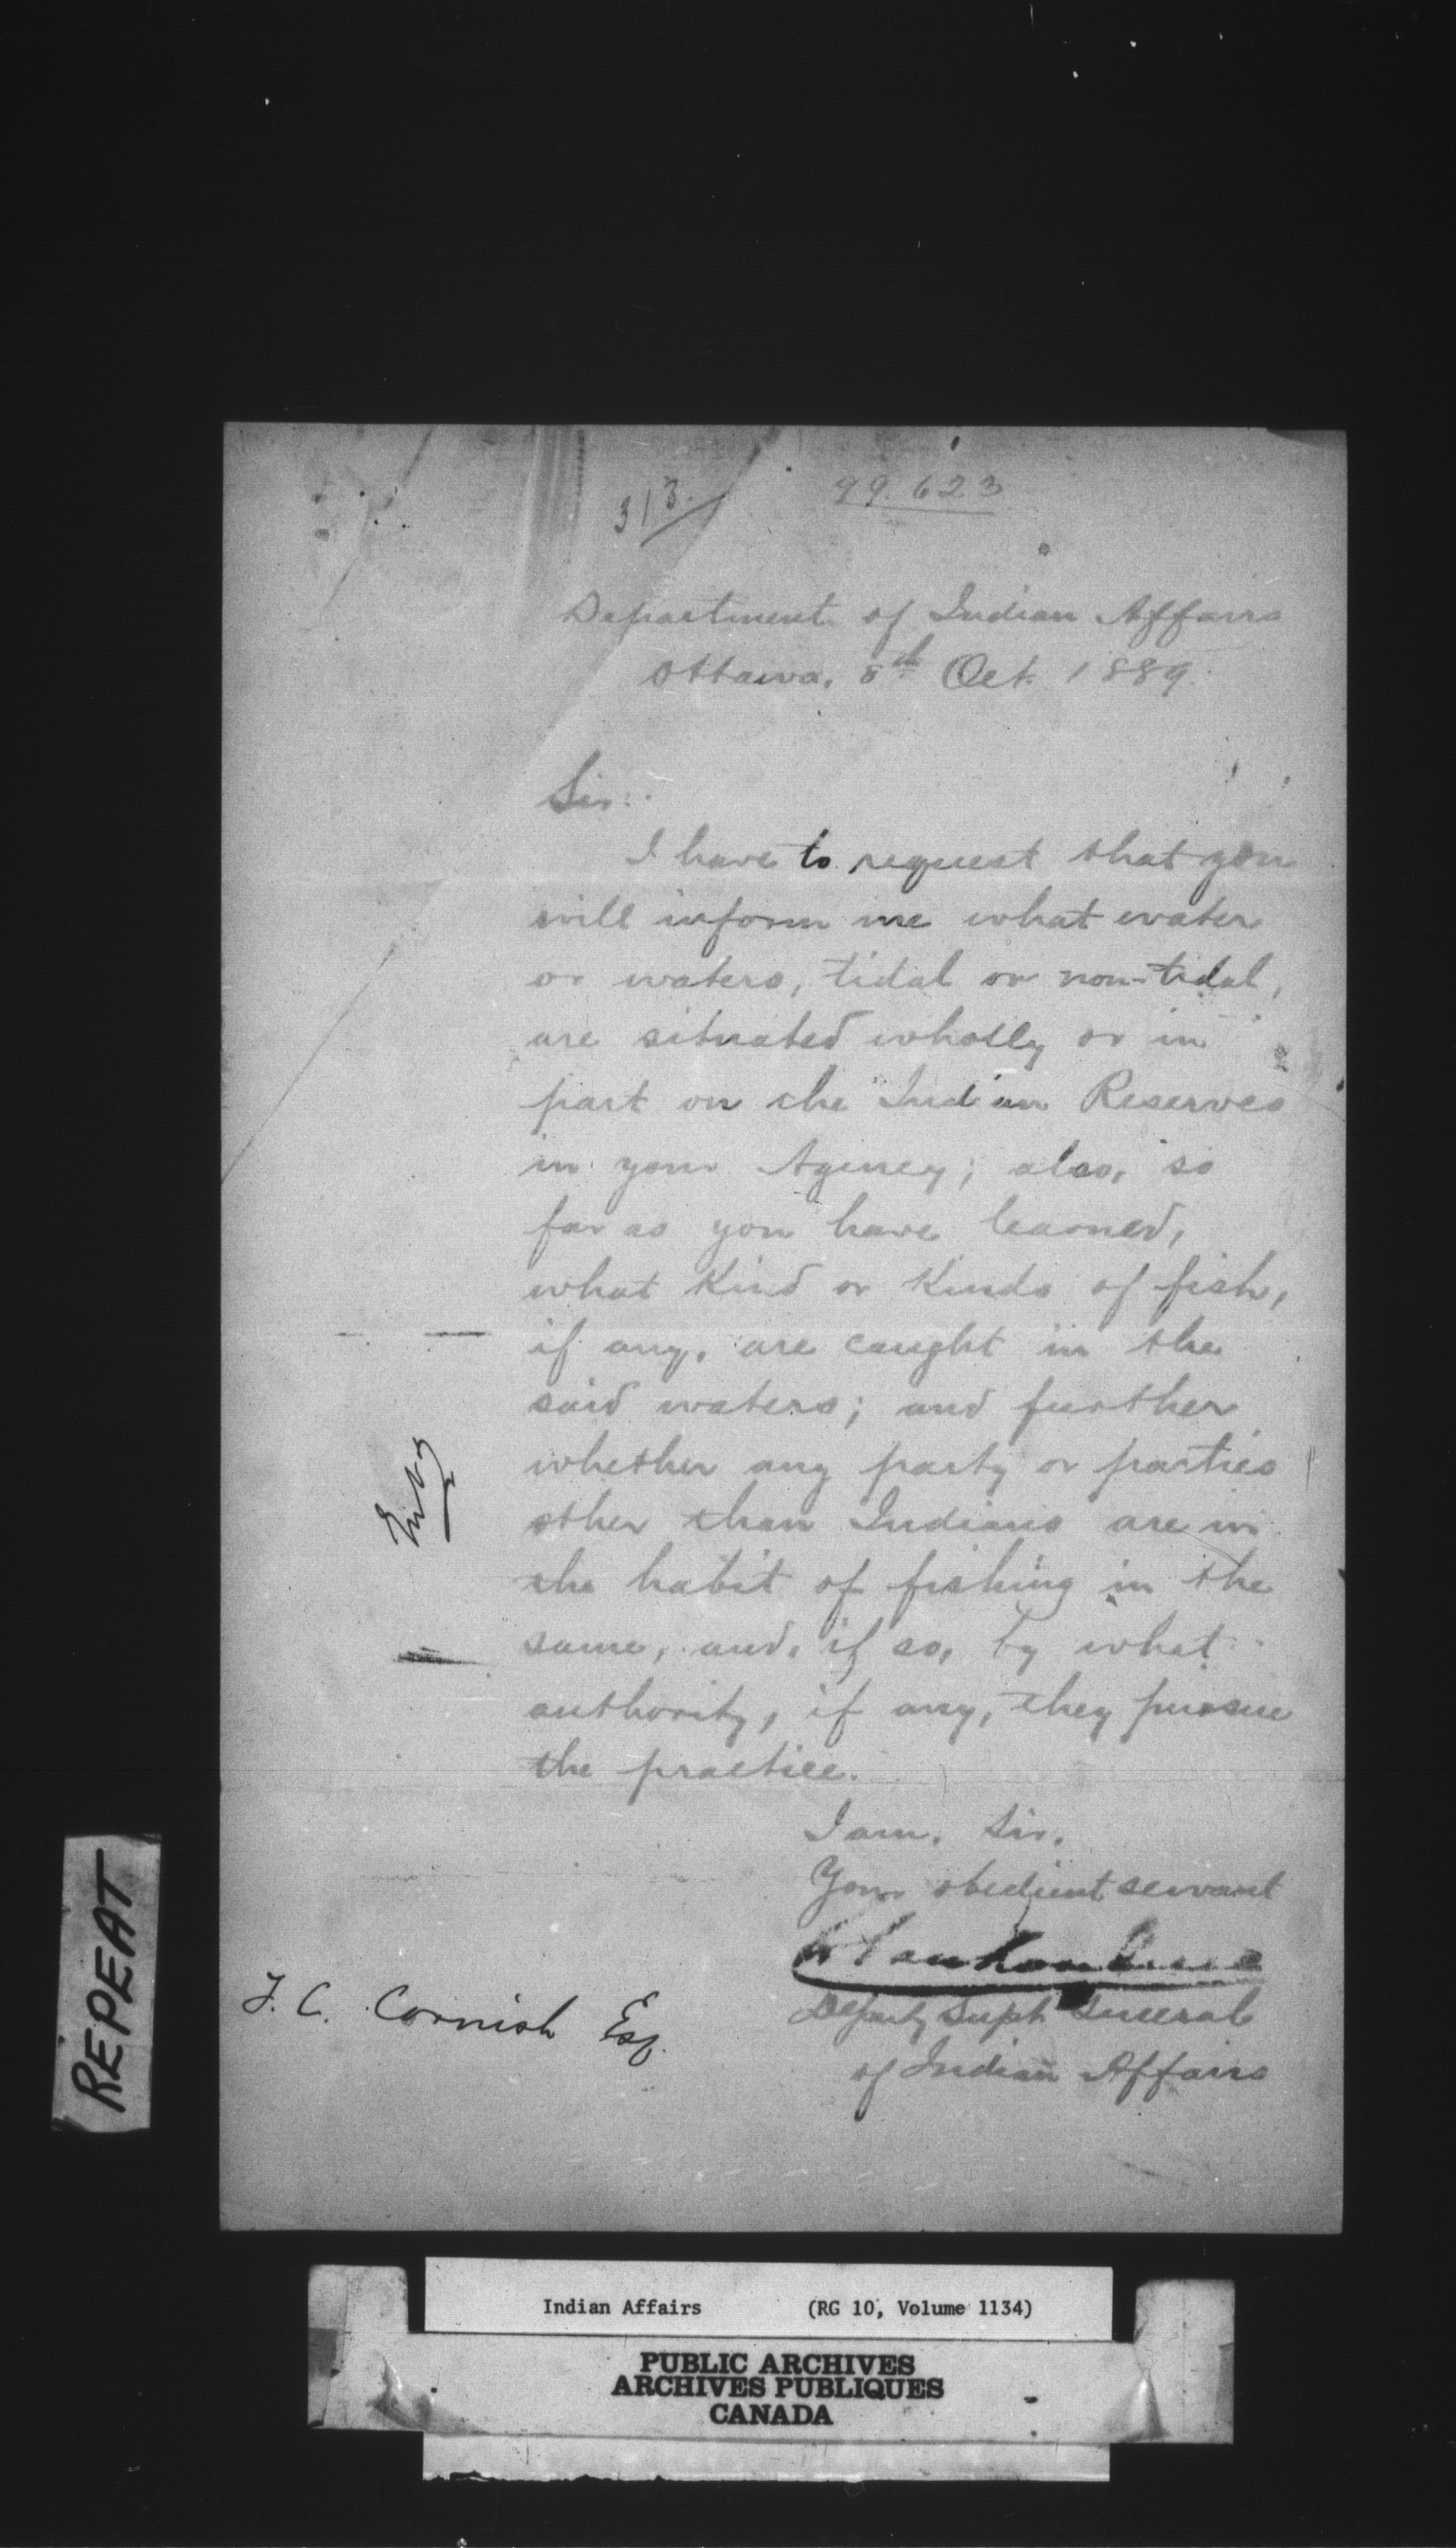 313.
99.623
Department of Indian Affairs
Ottawa, 8th Oct. 1889.
Sir:
I have to request that you
will inform me what water
or waters, tidal or non-tidal,
are situated wholly or in
part on the Indian Reserves
in your Agency; also, so
far as you have learned,
what kind or kinds of fish,
if any, are caught in the
said waters; and further
whether any party or parties
other than Indians are in
the habit of fishing in the
same, and, if so, by what
authority, if any, they pursue
the practice.
I am, Sir,
Your obedient servant
L Vankoughnet
Deputy Supt General
of Indian Affairs
J. C. Cornish Esq.
REPEAT
Indian Affairs (RG 10, Volume 1134)
PUBLIC ARCHIVES
ARCHIVES PUBLIQUES
CANADA